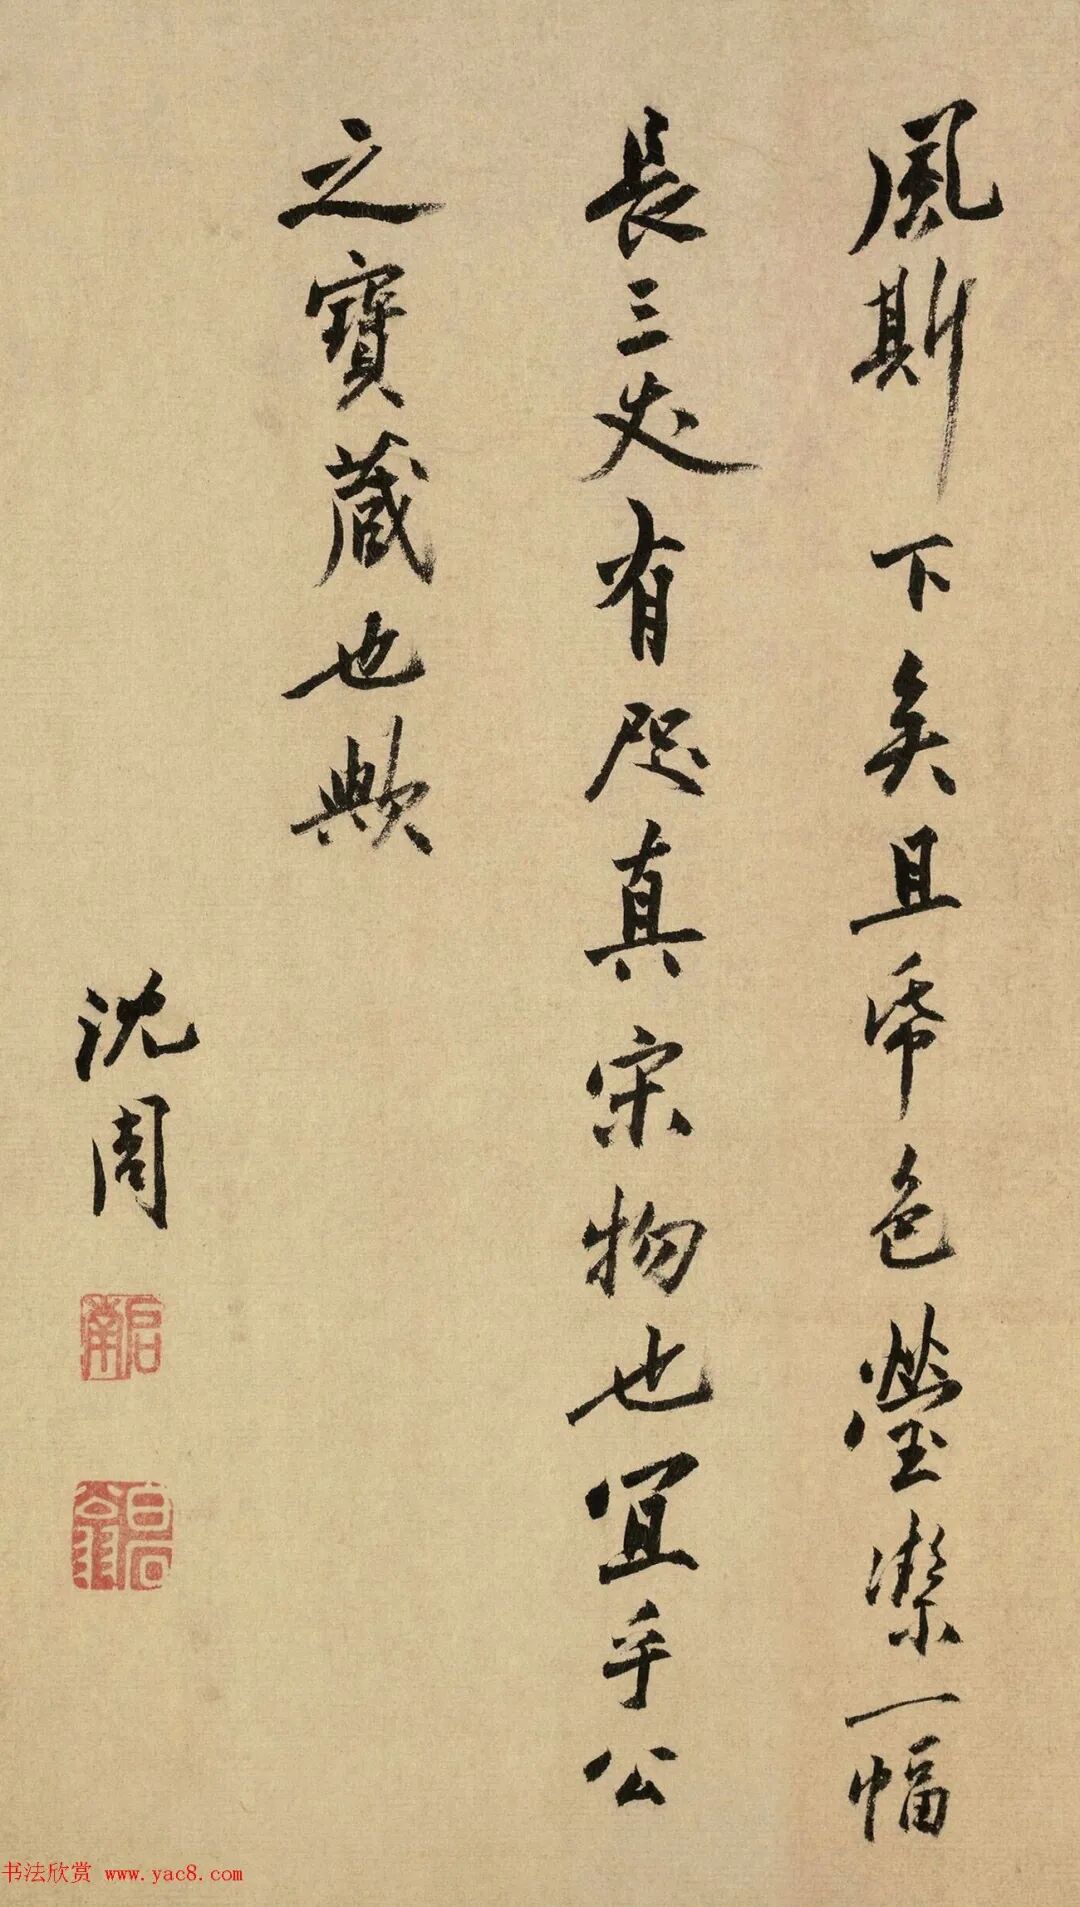 風斯下矣且帋色瑩潔一幅
長三丈有咫真宋物也宜乎公
之寶蔵也歟
沈周
啟南
白石翁
书法欣赏 www.yac8.com